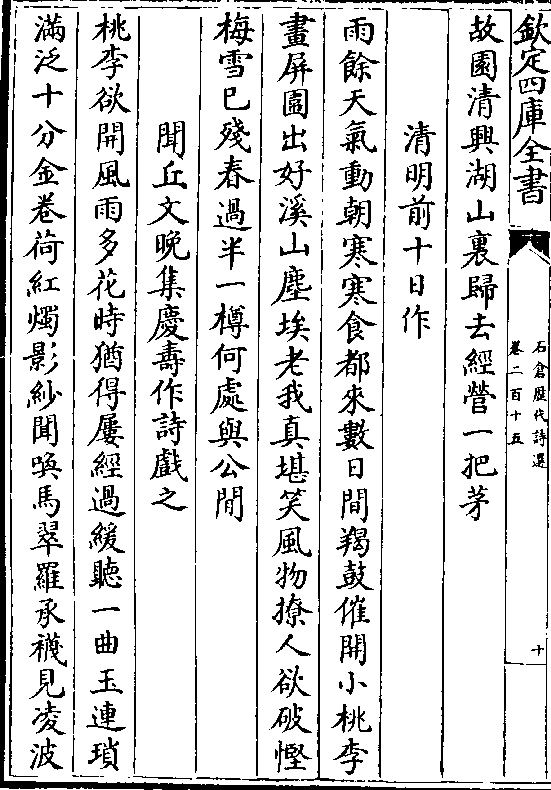 欽定四庫全書
石倉歴代詩選
卷二百十五
十
故園清興湖山裏歸去經營一把茅
清明前十日作
雨餘天氣動朝寒寒食都來數日間羯鼓催開小桃李
畫屏圍出好溪山塵埃老我真堪笑風物撩人欲破慳
梅雪已殘春過半一樽何處與公閒
聞丘文晚集慶壽作詩戲之
桃李欲開風雨多花時猶得屢經過緩聽一曲玉連瑣
滿泛十分金卷荷紅燭影紗聞喚馬翠羅承襪見凌波